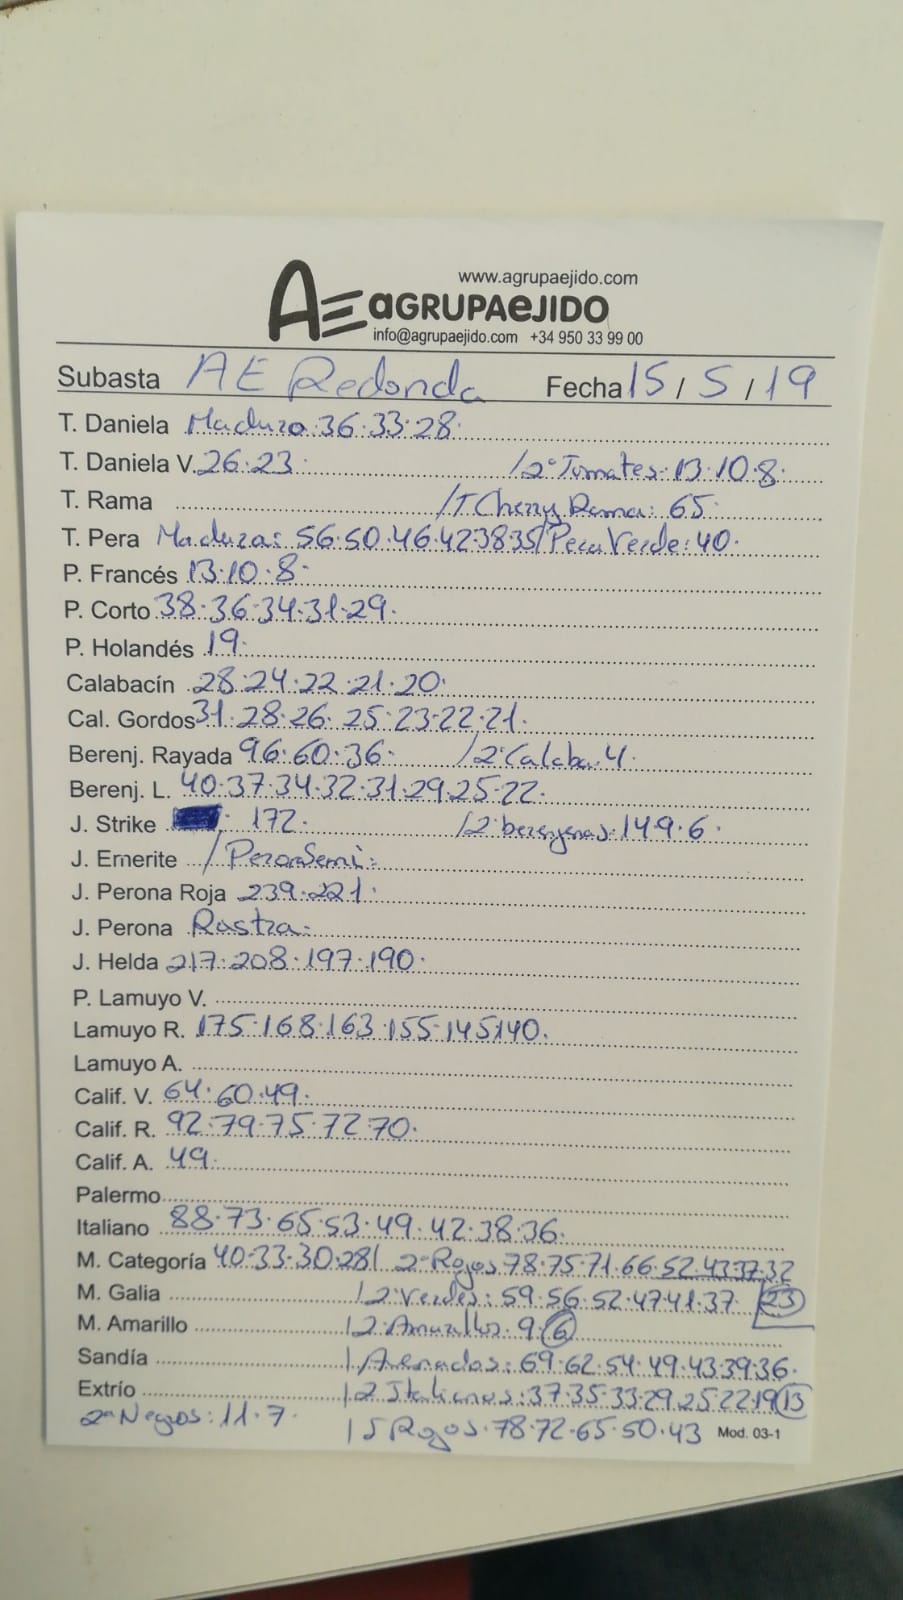 www.agrupaejido.com
AE aGRUPAeJIDO
info@agrupaejido.com +34 950 33 99 00
Subasta AE Redonda Fecha 15/5/19
T. Daniela Maduro 36·33·28·
T. Daniela V. 26·23· /2ª Tomates: 13·10·8·
T. Rama /T Cherry Rama: 65·
T. Pera Maduras: 56·50·46·42·38·35/Pera Verde: 40·
P. Francés 13·10·8·
P. Corto 38·36·34·31·29·
P. Holandés 19·
Calabacín 28·24·22·21·20·
Cal. Gordos 31·28·26·25·23·22·21·
Berenj. Rayada 96·60·36· /2ª Calaba. 4·
Berenj. L. 40·37·34·32·31·29·25·22·
J. Strike 172· /2 berengenas: 14·9·6·
J. Emerite /Perona Semi:
J. Perona Roja 239·221·
J. Perona Rastra:
J. Helda 217·208·197·190·
P. Lamuyo V.
Lamuyo R. 175·168·163·155·145·140·
Lamuyo A.
Calif. V. 64·60·49·
Calif. R. 92·79·75·72·70·
Calif. A. 49·
Palermo
Italiano 88·73·65·53·49·42·38·36·
M. Categoría 40·33·30·28/ 2ª Rojos 78·75·71·66·52·43·37·32
M. Galia /2ª Verdes: 59·56·52·47·41·37· 23
M. Amarillo /2ª Amarillos 9·6
Sandía /Asenados: 69·62·54·49·43·39·36·
Extrío /2 Italianos: 37·35·33·29·25·22·19·13
2ª Negros: 11·7· /S Rojos· 78·72·65·50·43 Mod. 03-1